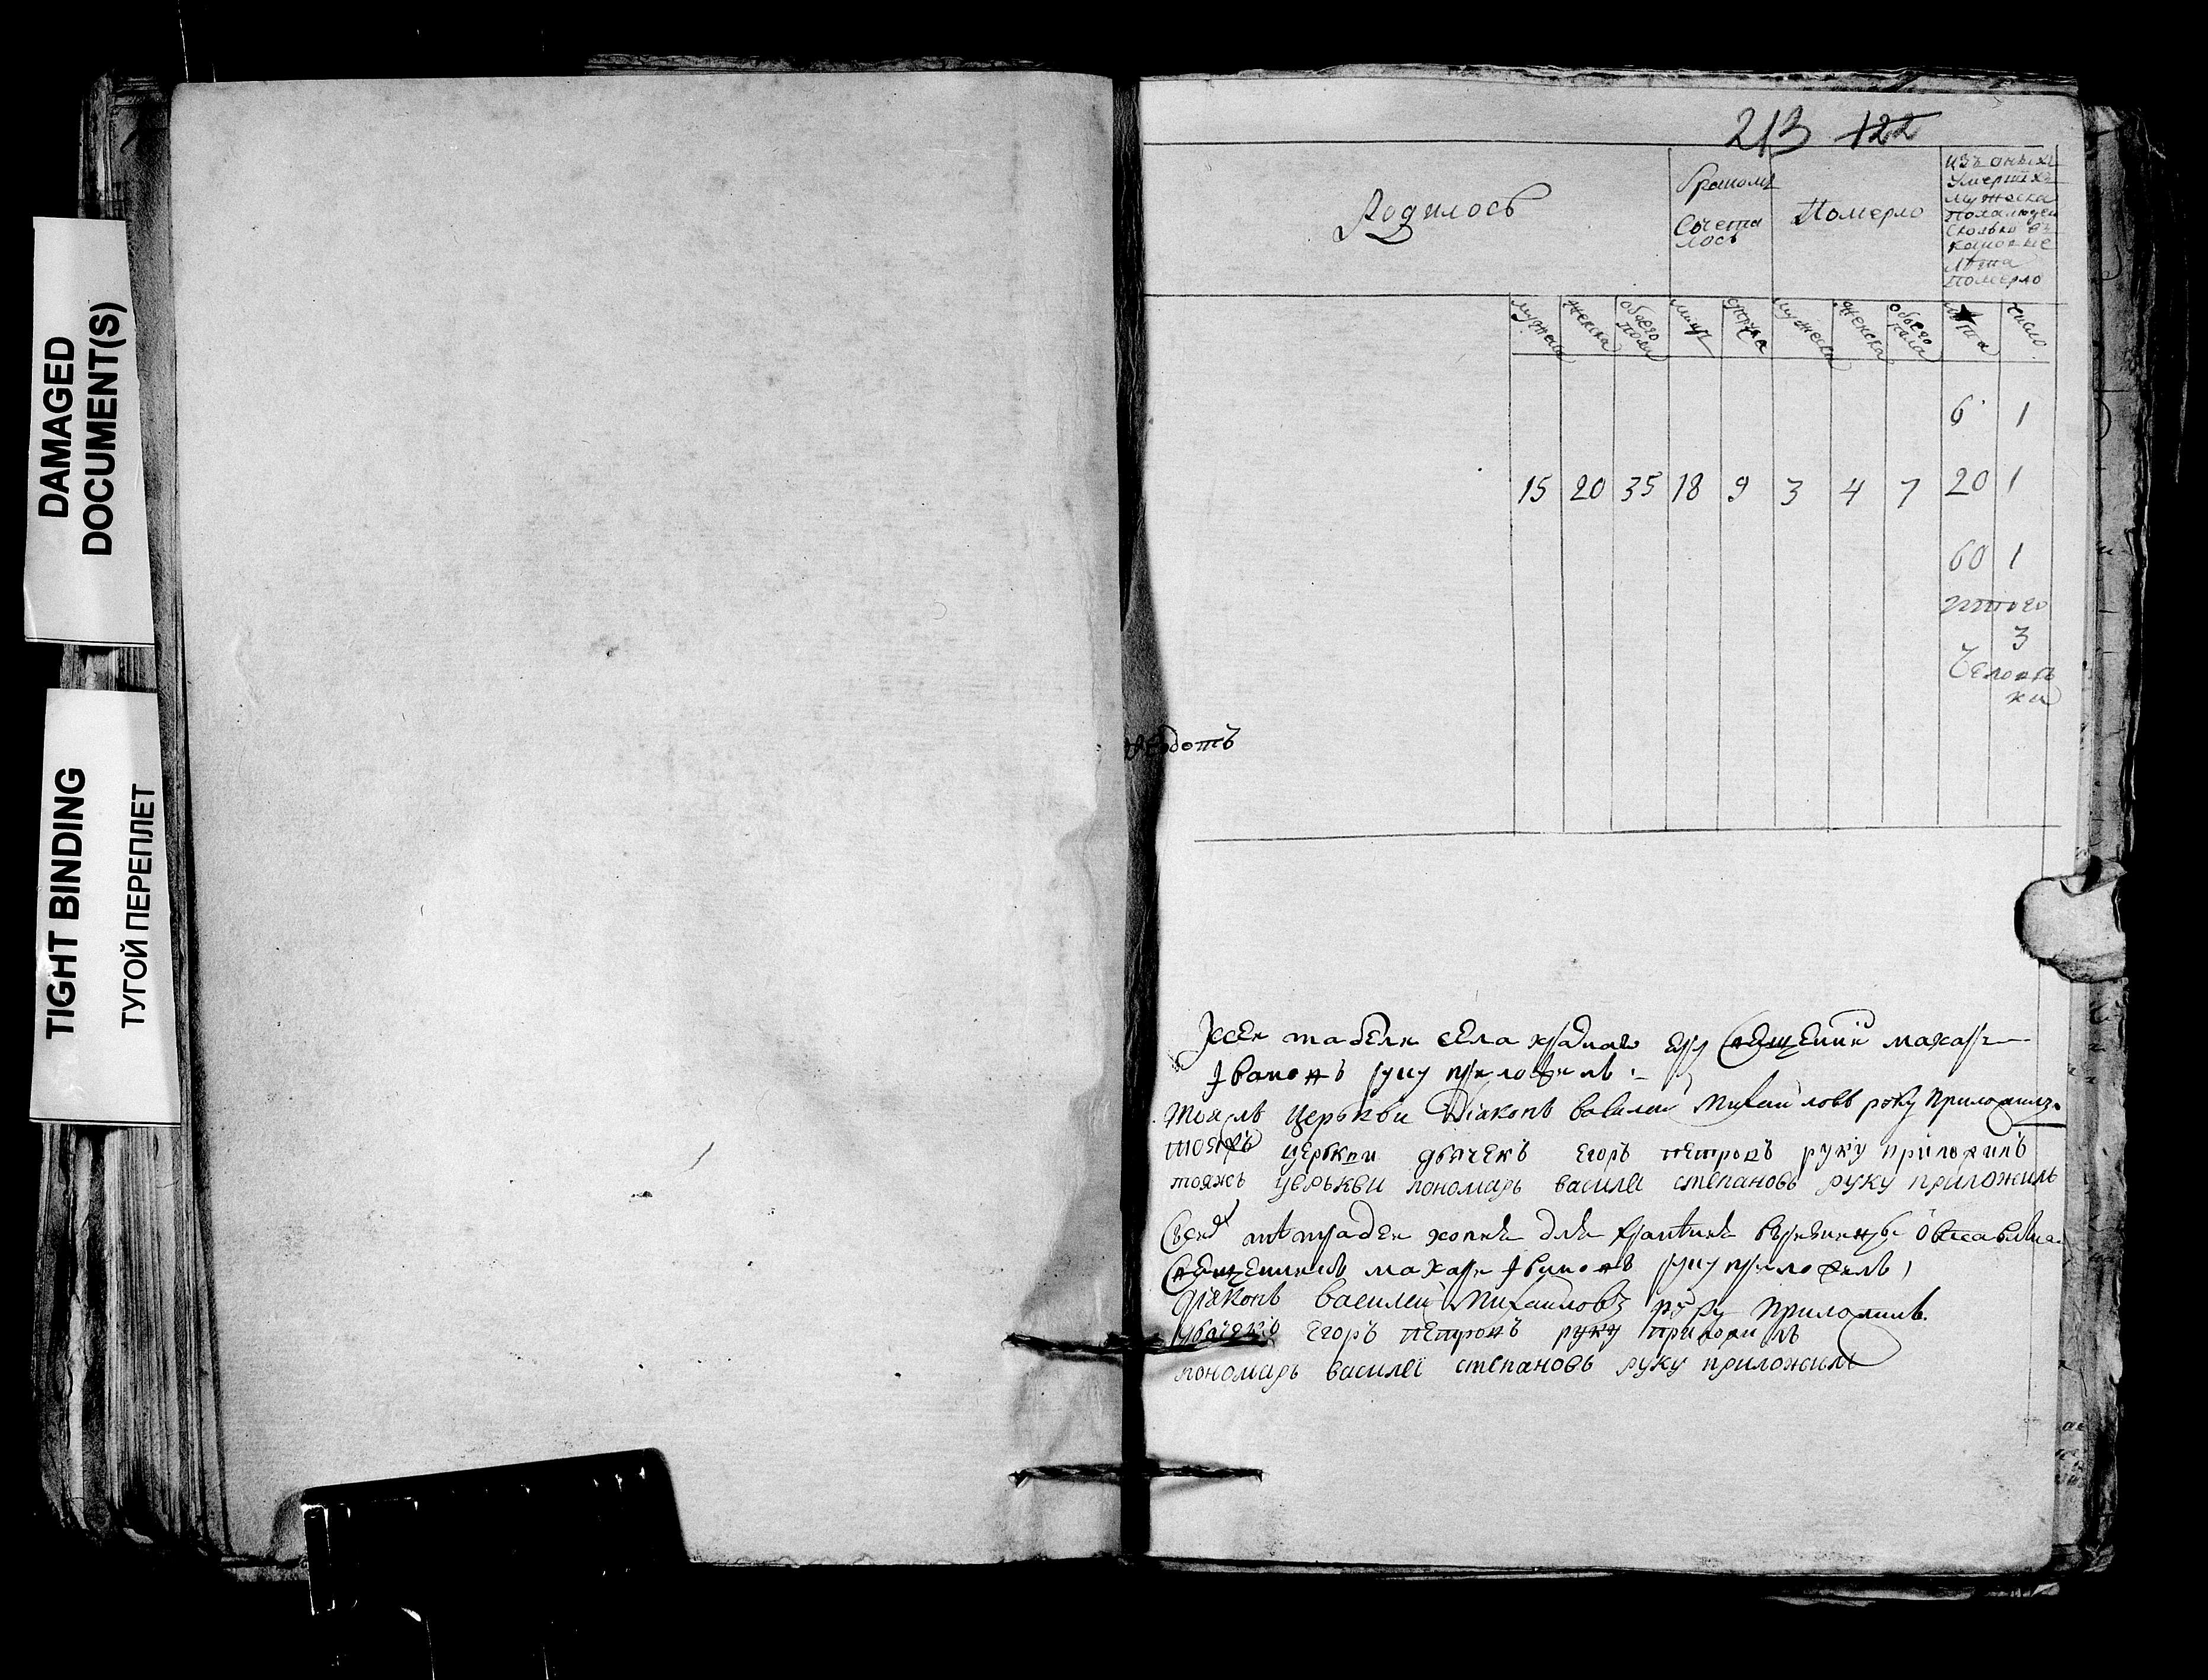 DAMAGED
DOCUMENT(S)
TIGHT BINDING
ТУГОЙ ПЕРЕПЛЕТ
213 122
Родилось
бракомъ
Сочета
лось
Померло
изъ оныхъ
умершихъ
мужеска
пола людеи
сколько въ
каковые
лѣта
померло
мужеска
женска
обоего
пола
лицъ
мужеска
женска
обоего
пола
лѣта
число
6 1
15 20 35 18 9 3 4 7 20 1
60 1
итого
3
человѣ
ки
табели села священникъ макаръ
Iвановъ руку приложилъ
тояжъ церькви Дiаконъ василеи Михаиловъ руку приложилъ
тояжъ церькви дьячекъ егоръ петровъ руку приложилъ
тояжъ церькви пономарь василеi степановъ руку приложилъ
тетради копия для
священникъ макаръ Iвановъ руку приложилъ
дiаконъ василеи Михаиловъ руку приложилъ.
дьячекъ егоръ петровъ руку приложилъ
пономарь василеi степановъ руку приложилъ